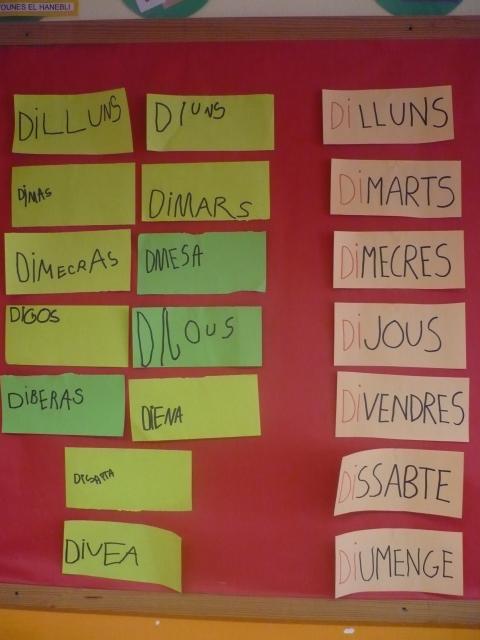 YOUNES EL HANEBLI
DiLLUNS
DIUNS
DILLUNS
DiMAS
DiMARS
DiMARTS
DiMECRAS
DMESA
DiMECRES
DIGOS
DIJOUS
DiJOUS
DiBERAS
DIENA
DiVENDRES
DISAPTA
DiSSABTE
DiUEA
DiUMENGE